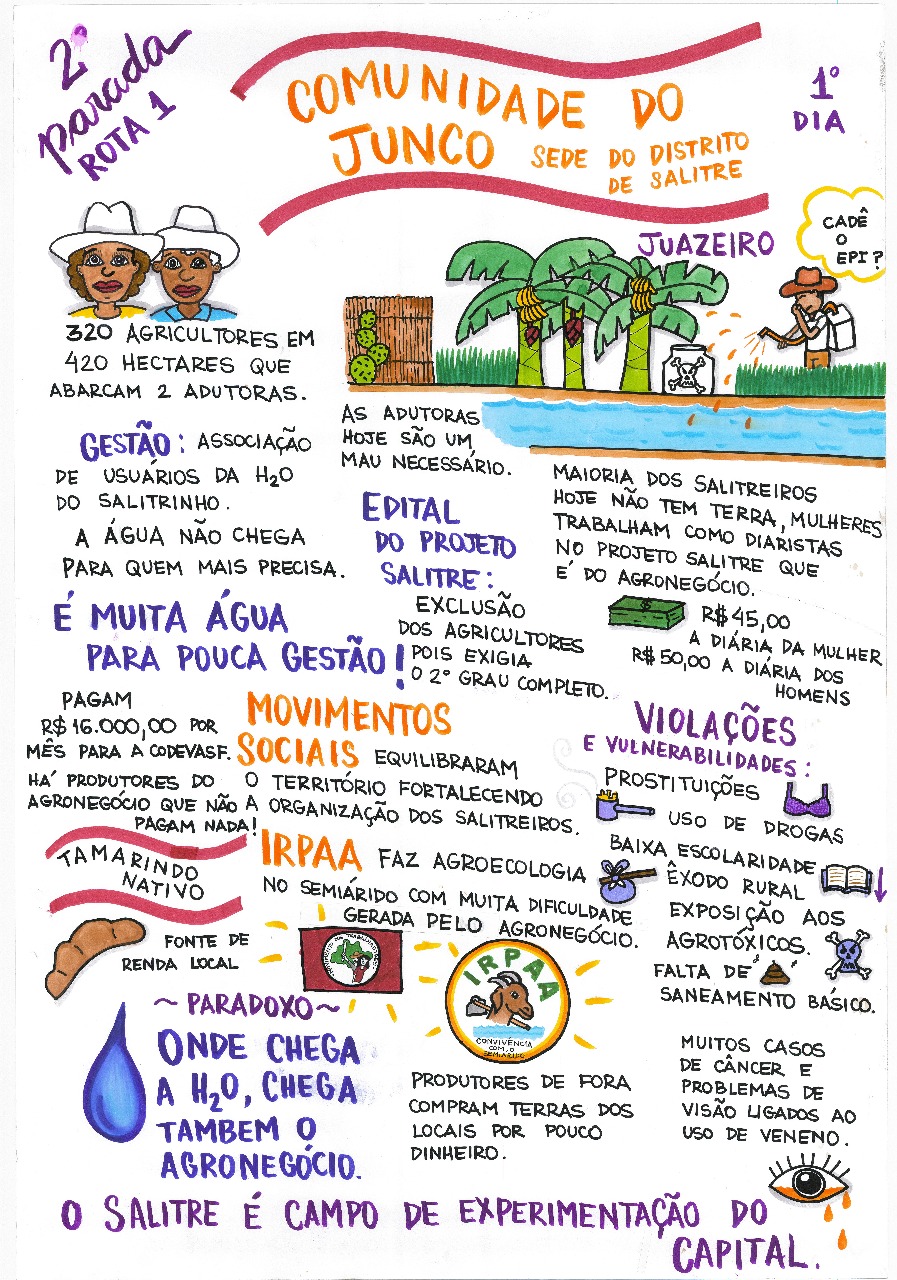 2ª
parada
ROTA 1
COMUNIDADE DO
JUNCO SEDE DO DISTRITO
DE SALITRE
1º
DIA
JUAZEIRO
CADÊ
O
EPI?
320 AGRICULTORES EM
420 HECTARES QUE
ABARCAM 2 ADUTORAS.
GESTÃO: ASSOCIAÇÃO
DE USUÁRIOS DA H2O
DO SALITRINHO.
A ÁGUA NÃO CHEGA
PARA QUEM MAIS PRECISA.
É MUITA ÁGUA
PARA POUCA GESTÃO!
AS ADUTORAS
HOJE SÃO UM
MAU NECESSÁRIO.
EDITAL
DO PROJETO
SALITRE:
EXCLUSÃO
DOS AGRICULTORES
POIS EXIGIA
O 2º GRAU COMPLETO.
MAIORIA DOS SALITREIROS
HOJE NÃO TEM TERRA, MULHERES
TRABALHAM COMO DIARISTAS
NO PROJETO SALITRE QUE
É DO AGRONEGÓCIO.
$
R$45,00
A DIÁRIA DA MULHER
R$50,00 A DIÁRIA DOS
HOMENS
PAGAM
R$16.000,00 POR
MÊS PARA A CODEVASF.
HÁ PRODUTORES DO
AGRONEGÓCIO QUE NÃO
PAGAM NADA!
MOVIMENTOS
SOCIAIS EQUILIBRARAM
O TERRITÓRIO FORTALECENDO
A ORGANIZAÇÃO DOS SALITREIROS.
IRPAA FAZ AGROECOLOGIA
NO SEMIÁRIDO COM MUITA DIFICULDADE
GERADA PELO AGRONEGÓCIO.
VIOLAÇÕES
E VULNERABILIDADES:
PROSTITUIÇÕES
USO DE DROGAS
BAIXA ESCOLARIDADE
ÊXODO RURAL
EXPOSIÇÃO AOS
AGROTÓXICOS.
FALTA DE
SANEAMENTO BÁSICO.
TAMARINDO
NATIVO
FONTE DE
RENDA LOCAL
~ PARADOXO ~
ONDE CHEGA
A H2O, CHEGA
TAMBEM O
AGRONEGÓCIO.
IRPAA
CONVIVÊNCIA
COM O
SEMIÁRIDO
PRODUTORES DE FORA
COMPRAM TERRAS DOS
LOCAIS POR POUCO
DINHEIRO.
MUITOS CASOS
DE CÂNCER E
PROBLEMAS DE
VISÃO LIGADOS AO
USO DE VENENO.
O SALITRE É CAMPO DE EXPERIMENTAÇÃO DO
CAPITAL.